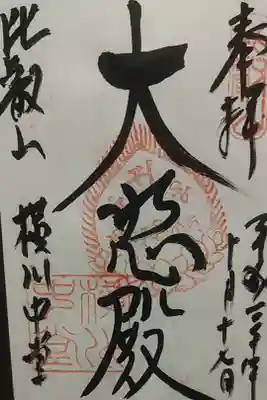 奉拝
平成二十年
十月十七日
大慈殿
比叡山
横川中堂